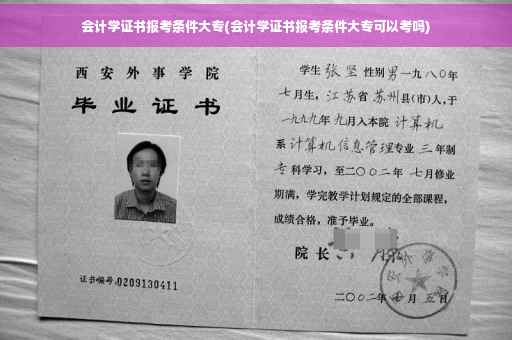 会计学证书报考条件大专(会计学证书报考条件大专可以考吗)
西安外事学院
毕业证书
证书编号:0209130411
学生 张坚 性别 男 一九八〇年
七月生, 江苏省 苏州 县(市)人,于
一九九九年 九月入本院 计算机
系 计算机信息管理专业 三 年制
专 科学习,至二〇〇二年 七月修业
期满,学完教学计划规定的全部课程,
成绩合格,准予毕业。
院长
二〇〇二年 月 五日